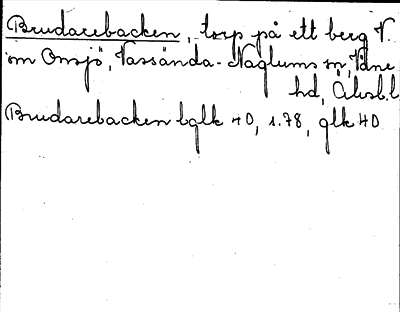 Brudarebacken, torp på ett berg V.
om Onsjö, Vassända-Naglums sn, Väne
hd, Älvsb.l
Brudarebacken lglk 40, 1.78, glk 40